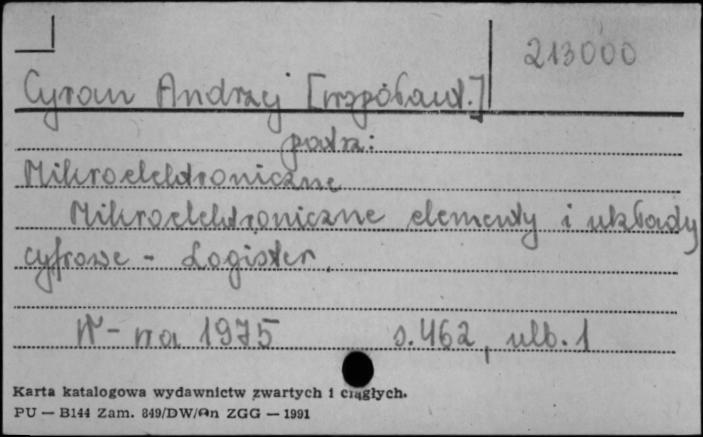 213000
Cyran Andrzej [współaut.]
patrz:
Mikroelektroniczne
Mikroelektroniczne elementy i układy
cyfrowe - Logister.
W-wa 1975 s. 462, ulb. 1
Karta katalogowa wydawnictw zwartych i ciągłych.
PU — B144 Zam. 849/DW/An ZGG — 1991